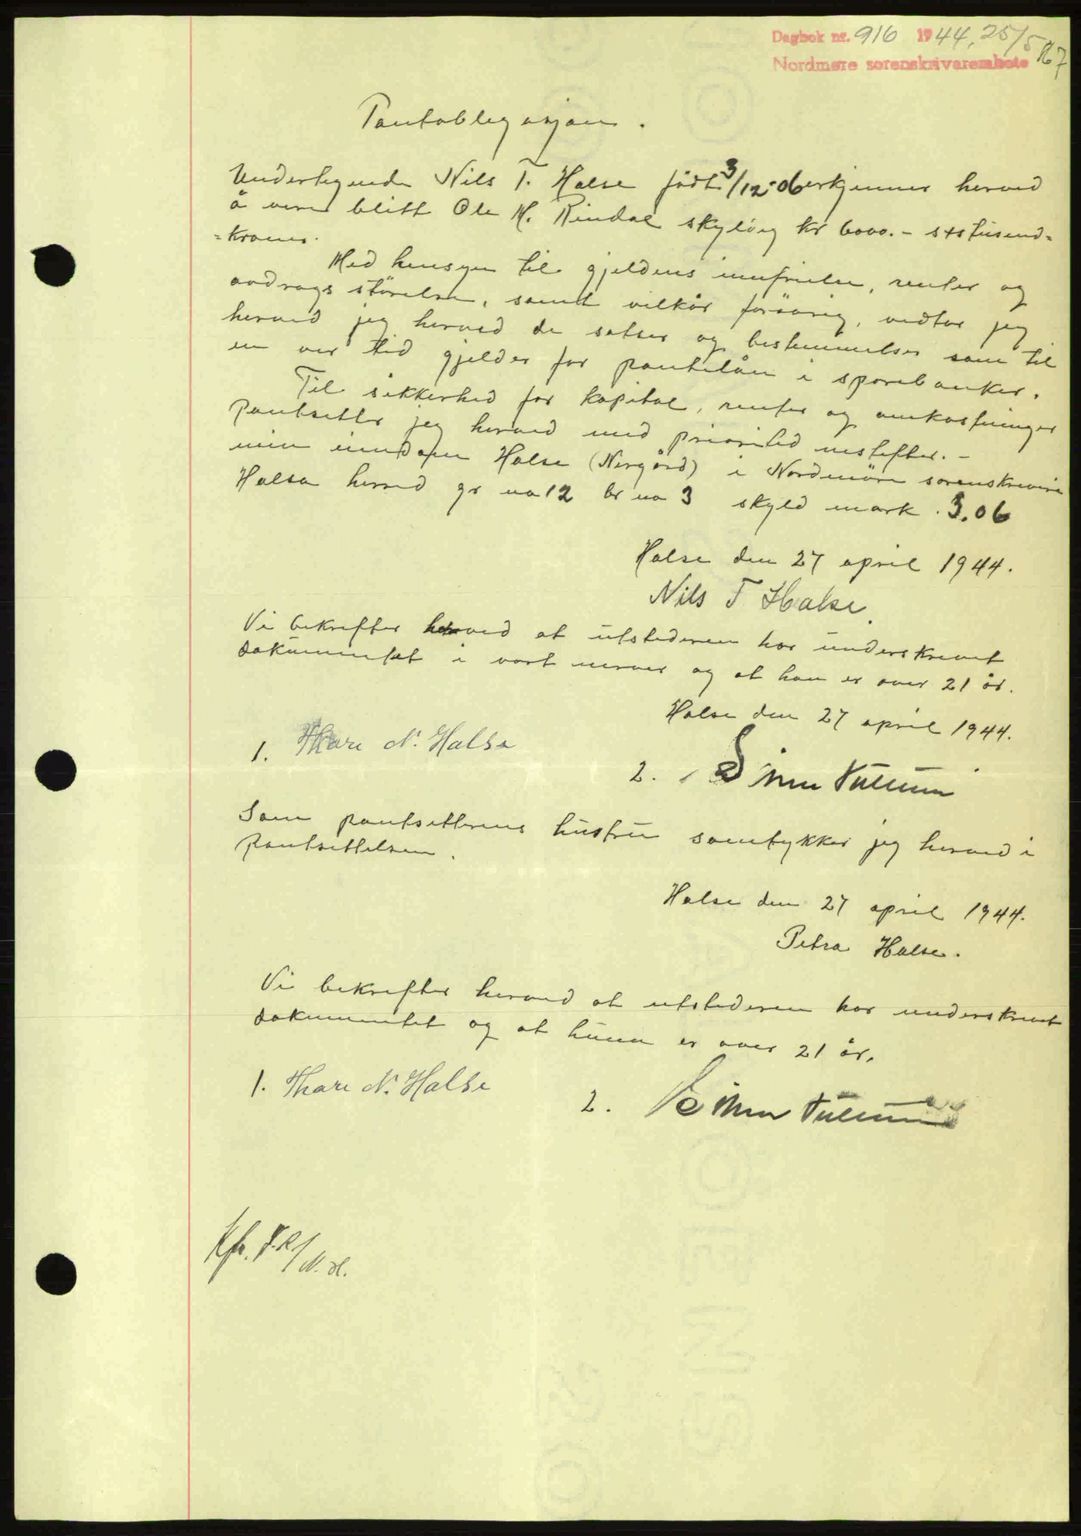 Dagbok nr. 916 1944, 25/5
Nordmøre sorenskrivarembete 167
Pantobligasjon.
Undertegnede Nils T. Halse født 3/12-06 erkjenner herved
å være blitt Ole M. Rindal skyldig kr 6000.- sekstusend-
-kroner.
Med hensyn til gjeldens innfrielse, renter og
avdrags størelse, samt vilkår forøvrig, vedtar jeg
herved jeg herved de satser og bestemmelser som til
en ver tid gjelder for pantelån i sparebanker.
Til sikkerhed for kapital, renter og omkostninger
pantsetter jeg herved med priorited nestefter. -
min eiendom Halse (Nergård) i Nordmöre sorenskriveri
Halsa herred gr no 12 br no 3 skyld mark 3.06
Halse den 27 april 1944.
Nils T Halse
Vi bekrefter herved at utstederen har underskrevet
dokumentet i vort nerver og at han er over 21 år.
Halse den 27 april 1944.
1. Thare N. Halse
2. Einar Tullum
Som pantsetterens hustru samtykker jeg herved i
pantsettelsen.
Halse den 27 april 1944.
Petra Halse.
Vi bekrefter herved at utstederen har underskrevet
dokumentet og at hunn er over 21 år.
1. Thare N. Halse
2. Einar Tullum
Kfr.